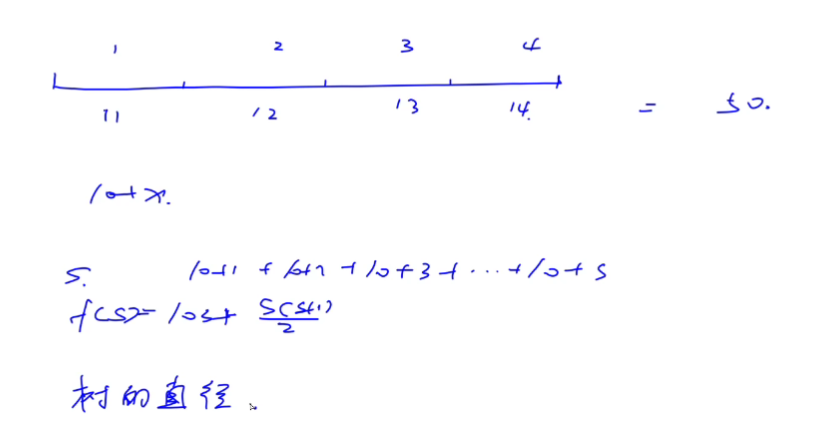 1 2 3 4
11 12 13 14. = 50.
10+x.
S. 10+1 + 10+2 + 10+3 + ... + 10+S
f(S)= 10S+ S(S+1)/2
树的直径.